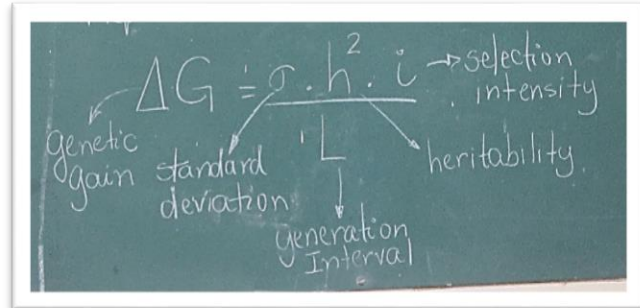 ΔG = σ . h² . i → selection intensity
L
genetic gain
standard deviation
heritability.
generation Interval